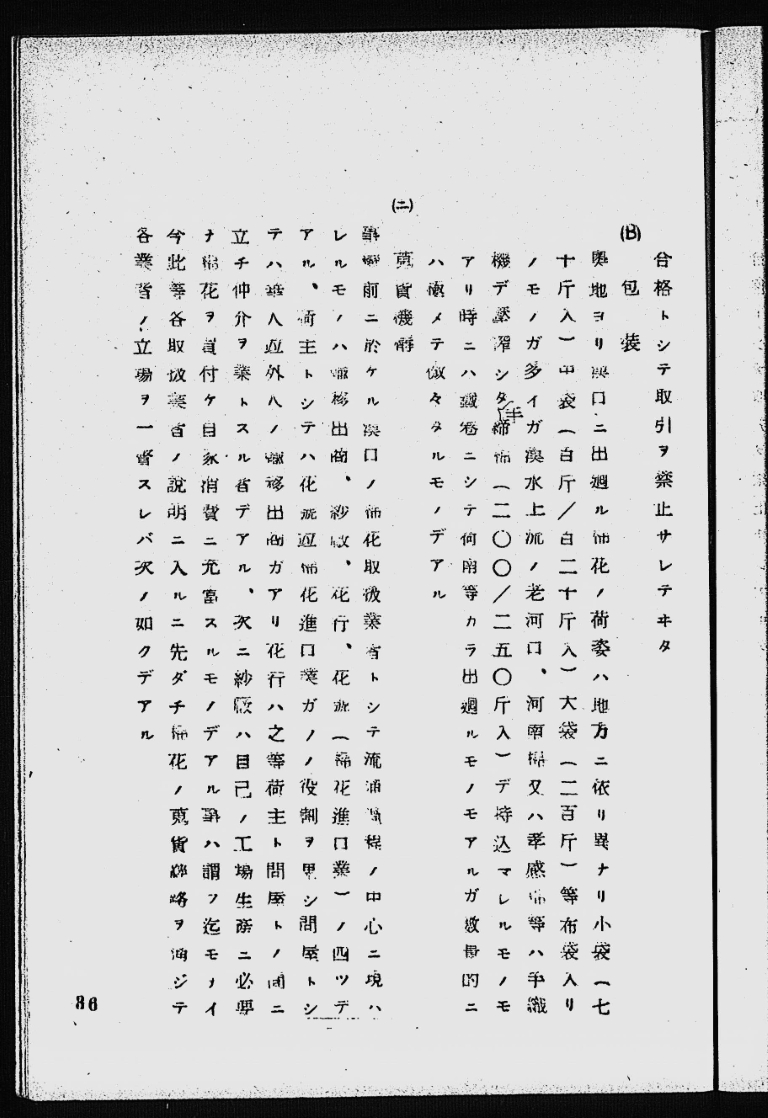 合格トシテ取引ヲ禁止サレテヰタ
(B) 包装
奥地ヨリ漢口ニ出廻ル棉花ノ荷姿ハ地方ニ依リ異ナリ小袋(七
十斤入)中袋(百斤/百二十斤入)大袋(二百斤)等布袋入リ
ノモノガ多イガ漢水上流ノ老河口、河南棉又ハ孝感棉等ハ手織
機デ シタ 棉(二〇〇/二五〇斤入)デ持込マレルモノモ
洋
アリ時ニハ 巻ニシテ河南等カラ出廻ルモノモアルガ数量的ニ
ハ極メテ微々タルモノデアル
(ニ) 蒐貨機構
事変前ニ於ケル漢口ノ棉花取扱業者トシテ流通過程ノ中心ニ現ハ
レルモノハ輸移出商、紗廠、花行、花號(棉花進口業)ノ四ツデ
アル、荷主トシテハ花號迺棉花進口業ガノノ役割ヲ果シ問屋トシ
テハ華人迺外人ノ輸移出商ガアリ花行ハ之等荷主ト問屋トノ間ニ
立チ仲介ヲ業トスル者デアル、次ニ紗廠ハ自己ノ工場生産ニ必要
ナ棉花ヲ買付ケ自家消費ニ充當スルモノデアル事ハ謂フ迄モナイ
今此等各取扱業者ノ説明ニ入ルニ先ダチ棉花ノ蒐貨経路ヲ通ジテ
各業者ノ立場ヲ一瞥スレバ次ノ如クデアル
86